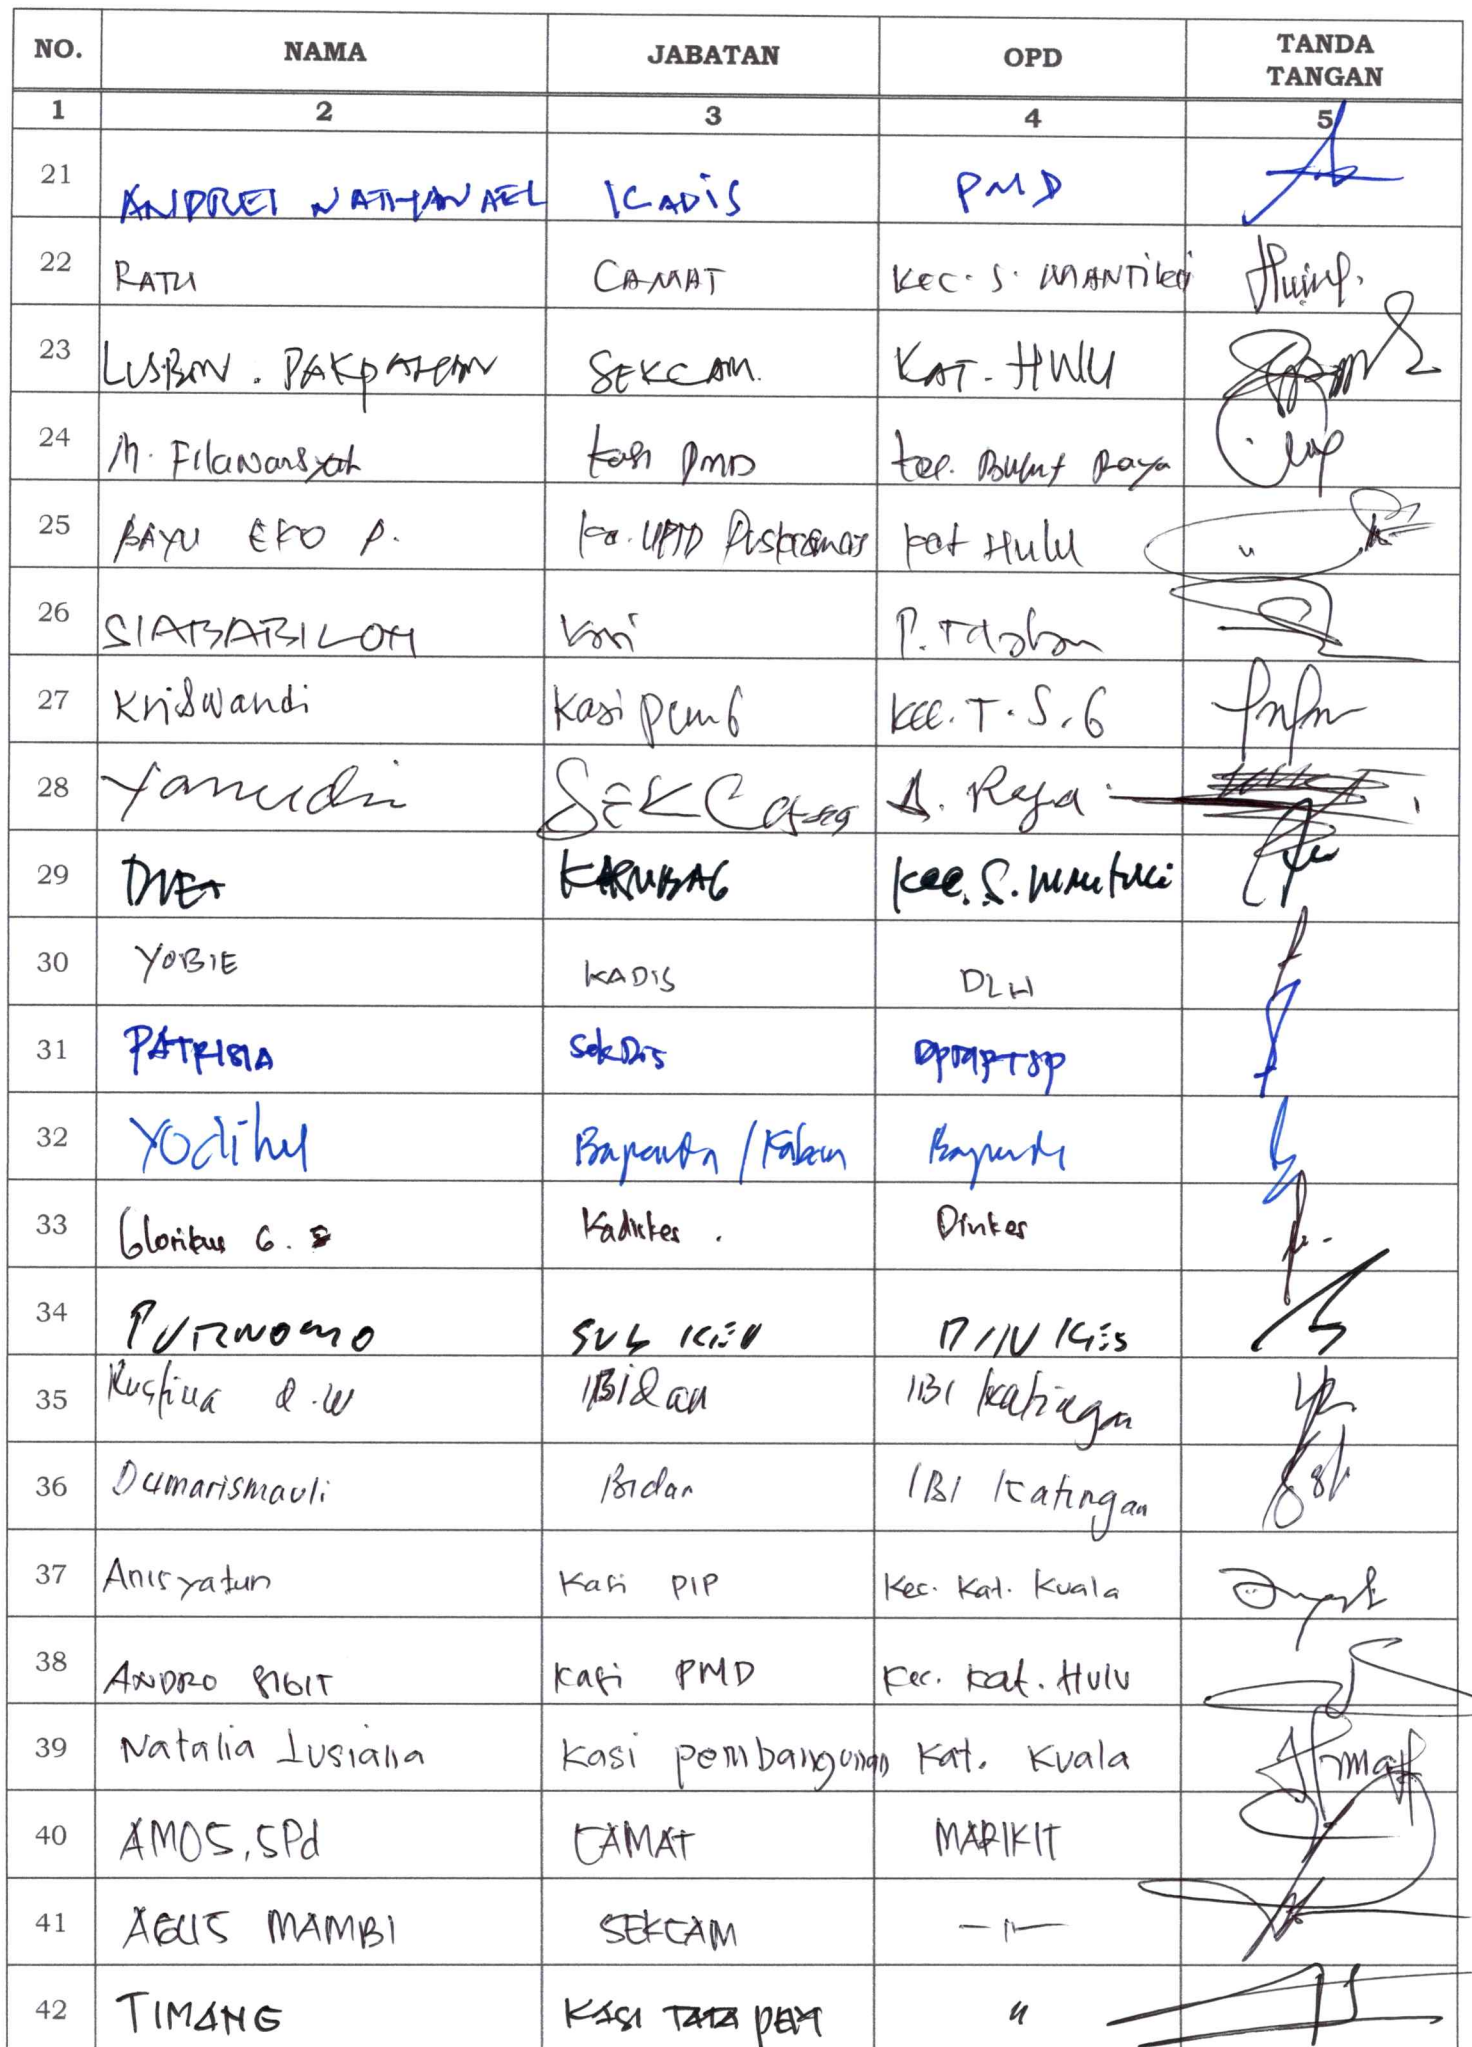 NO. NAMA JABATAN OPD TANDA TANGAN
1 2 3 4 5
21 ANDREI NATHANAEL KADIS PMD
22 RATU CAMAT KEC. S. MANTIKEI
23 LUSBON. PAKPAHAN SEKCAM. KAT. HULU
24 M. Filawansyah kasi PMD kec. Bukit Raya
25 BAYU EKO P. Ka. UPTD Puskesmas Kat Hulu
26 SIABABILOM Kasi
27 Kriswandi Kasi Pemb Kec. T. S. G
28 Yanudin SEKCam
29 KARUBAG Kec. S. Mantikei
30 YOBIE KADIS DLH
31 PATRISIA SekDis DPMPTSP
32 Bapenda / Kaban Bapenda
33 Kadinkes. Dinkes
34 PURNOMO DINKES
35 Rustina IBI Katingan
36 Damarismauli Bidan IBI Katingan
37 Anisyatun Kasi PIP Kec. Kat. Kuala
38 ANDRO SIGIT Kasi PMD Kec. Kat. Hulu
39 Natalia Lusiana Kasi pembangunan Kat. Kuala
40 AMOS, SPd CAMAT MARIKIT
41 AGUS MAMBI SEKCAM —"—
42 TIMANG KASI TATA PEM "